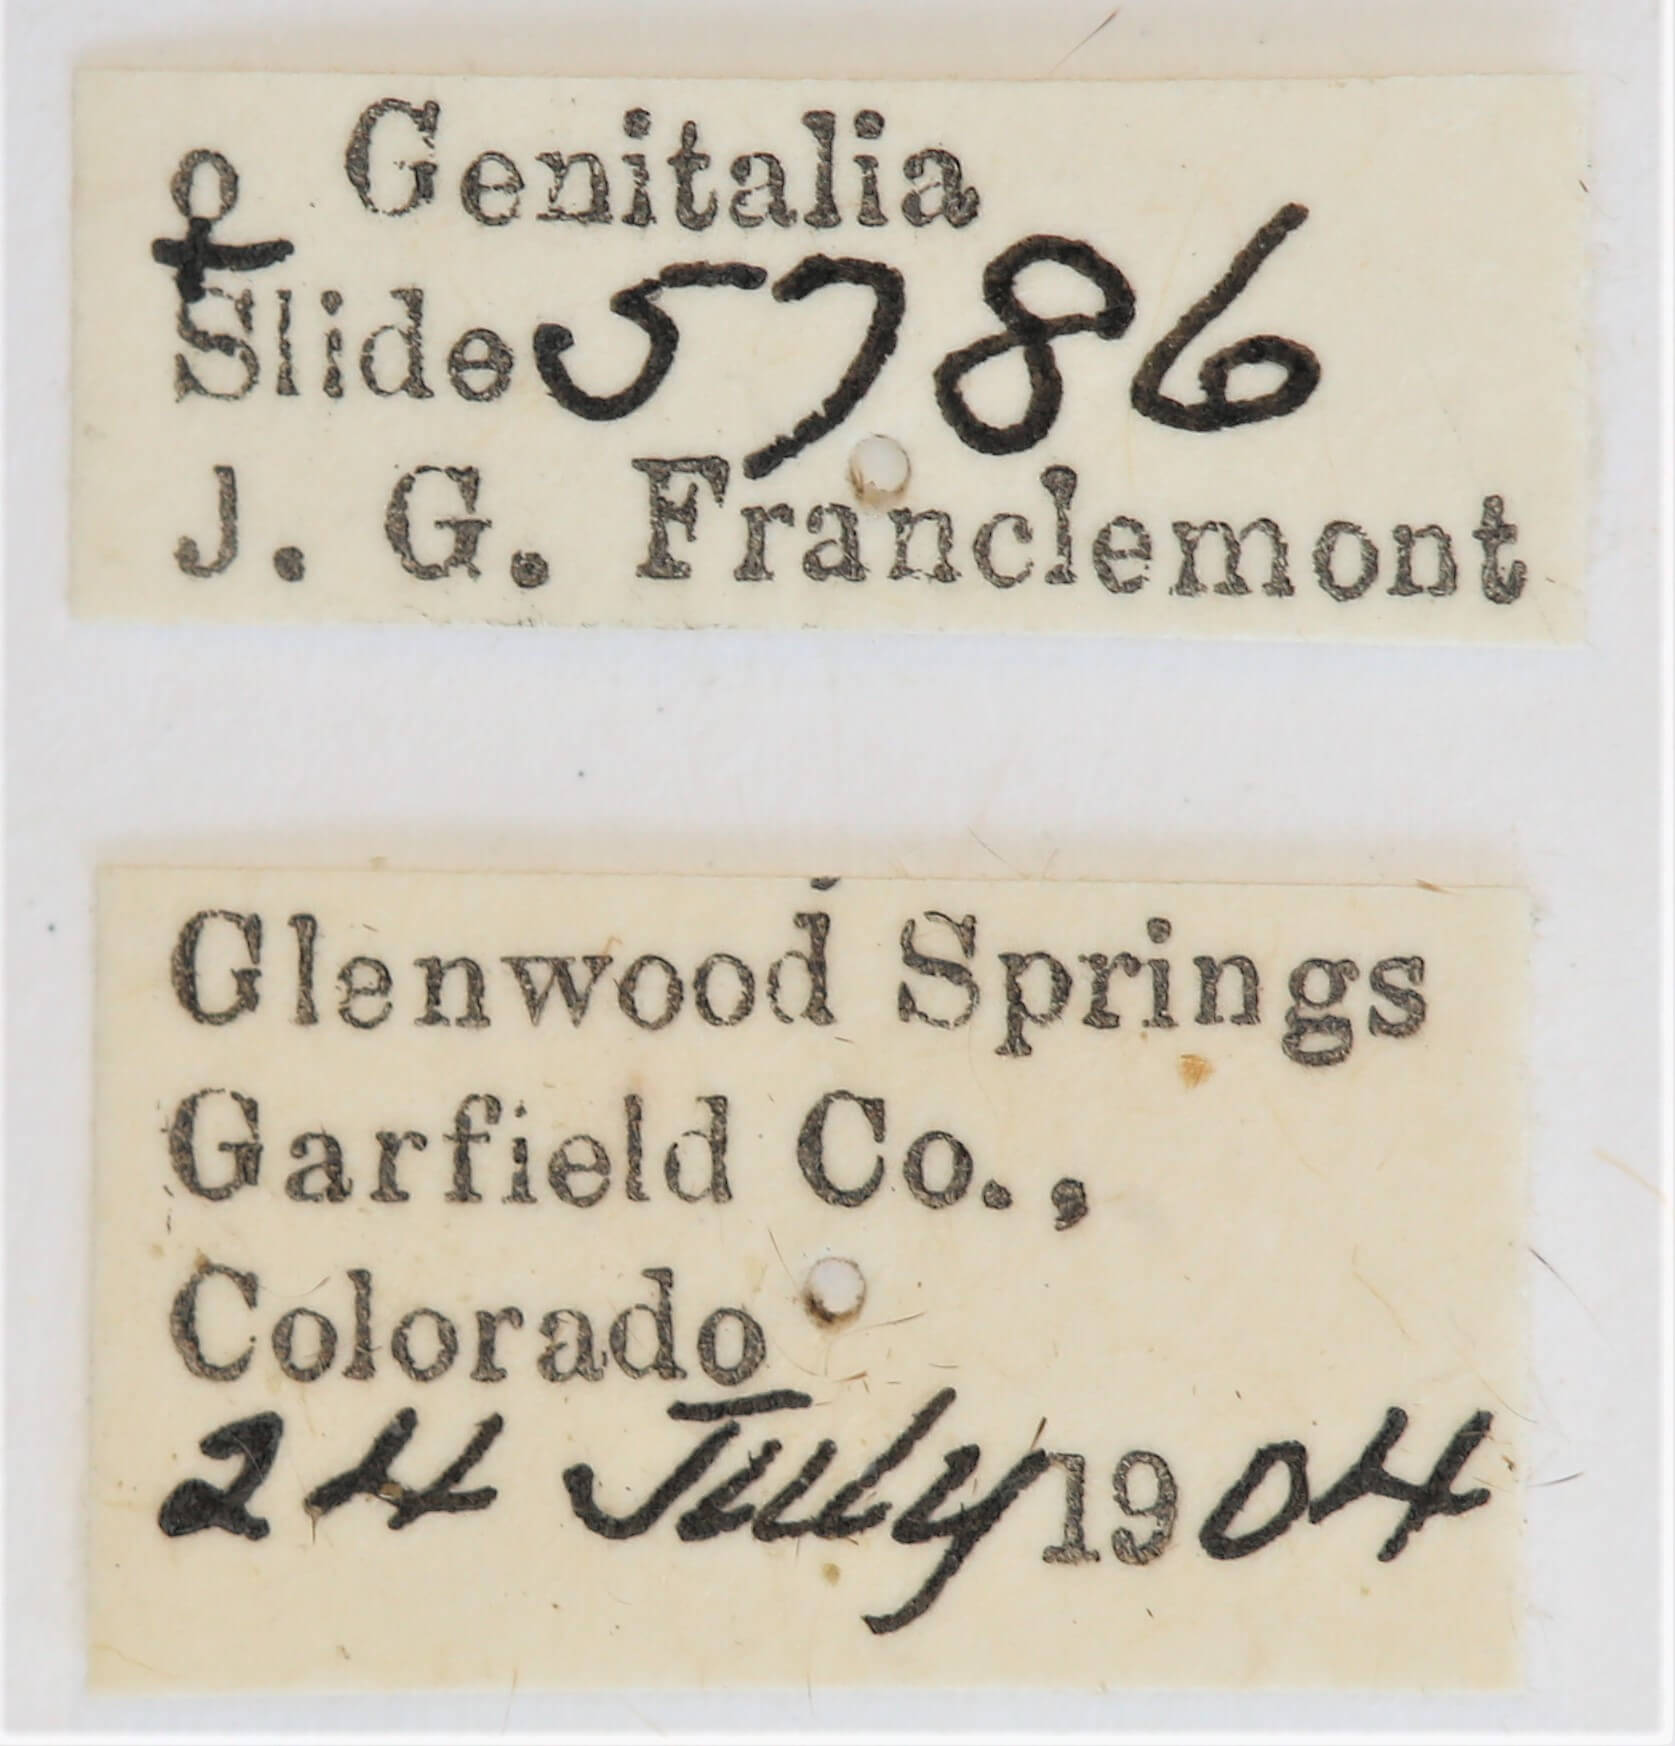 ♀ Genitalia
Slide 5786
J. G. Franclemont
Glenwood Springs
Garfield Co.,
Colorado
24 July 1904